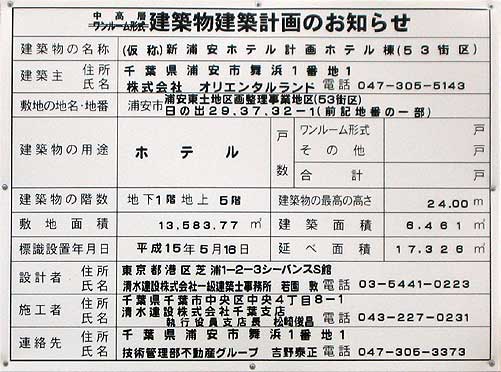 中高層
ワンルーム形式
建築物建築計画のお知らせ
建築物の名称 (仮称)新浦安ホテル計画ホテル棟(53街区)
建築主 住所 千葉県浦安市舞浜1番地1
氏名 株式会社 オリエンタルランド 電話 047-305-5143
敷地の地名・地番 浦安市 浦安東土地区画整理事業地区(53街区)
日の出29.37.32-1(前記地番の一部)
建築物の用途 ホテル 戸数 ワンルーム形式 戸
その他 戸
合計 戸
建築物の階数 地下1階地上 5階 建築物の最高の高さ 24.00m
敷地面積 13,583.77㎡ 建築面積 6.461㎡
標識設置年月日 平成15年5月16日 延べ面積 17,326㎡
設計者 住所 東京都港区芝浦1-2-3シーバンスS館
氏名 清水建設株式会社一級建築士事務所 若園 敦 電話 03-5441-0223
施工者 住所 千葉県千葉市中央区中央4丁目8-1
氏名 清水建設株式会社千葉支店
執行役員支店長 松崎俊昌 電話 043-227-0231
連絡先 住所 千葉県浦安市舞浜1番地1
氏名 技術管理部不動産グループ 吉野泰正 電話 047-305-3373